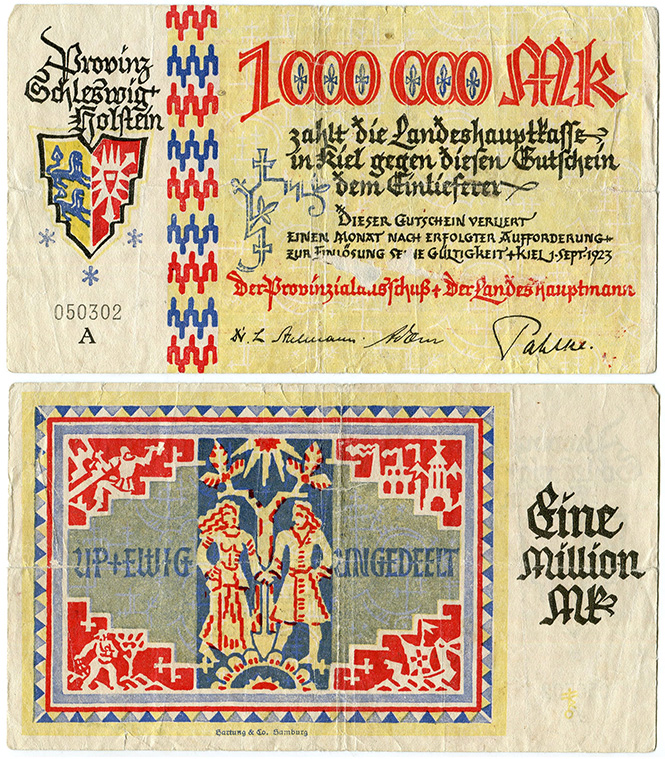 Provinz
Schleswig-
Holstein
050302
A
1000 000 Mk
zahlt die Landeshauptkasse
in Kiel gegen diesen Gutschein
dem Einlieferer
DIESER GUTSCHEIN VERLIERT
EINEN MONAT NACH ERFOLGTER AUFFORDERUNG
ZUR EINLÖSUNG SEINE GÜLTIGKEIT + KIEL 1. SEPT. 1923
Der Provinzialausschuß + Der Landeshauptmann
Pahlke.
UP + EWIG UNGEDEELT
Eine
Million
Mk
Hartung & Co. Hamburg